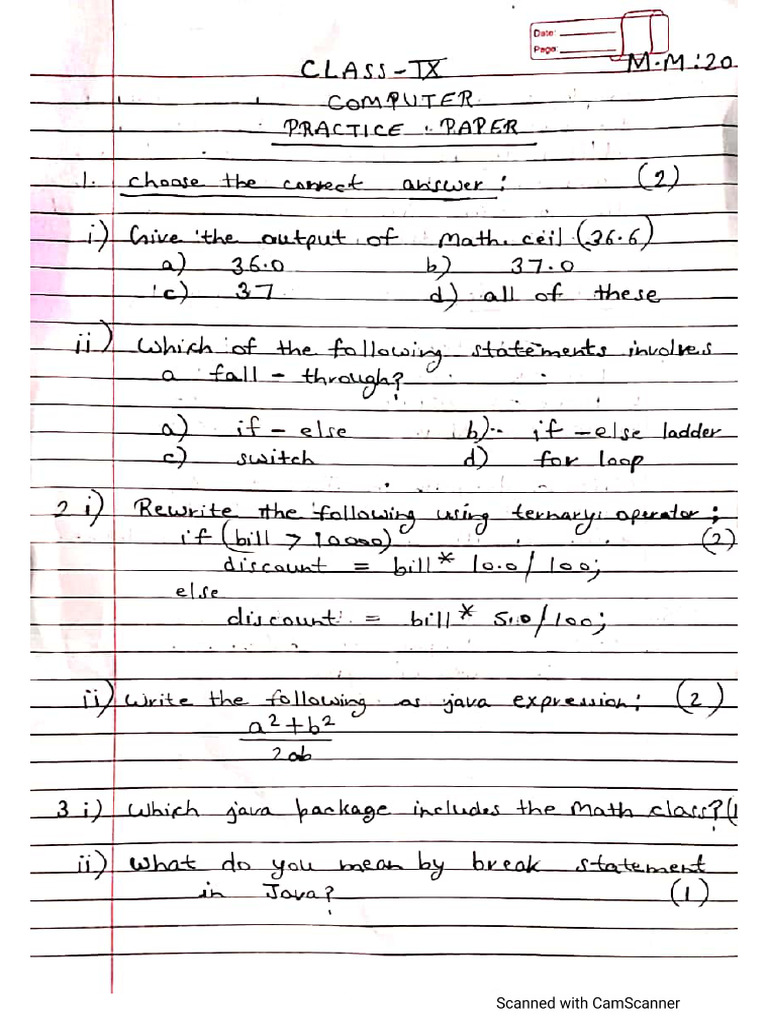 Date:
Page:
CLASS-IX
M.M:20
COMPUTER
PRACTICE PAPER
1. choose the correct answer: (2)
i) Give the output of Math.ceil(36.6)
a) 36.0 b) 37.0
c) 37 d) all of these
ii) Which of the following statements involves
a fall-through?
a) if-else b) if-else ladder
c) switch d) for loop
2 i) Rewrite the following using ternary operator;
if (bill > 10000) (2)
discount = bill* 10.0/100;
else
discount = bill* 5.0/100;
ii) Write the following as java expression: (2)
a²+b²
2ab
3 i) Which java package includes the Math class? (1
ii) What do you mean by break statement
in Java? (1)
Scanned with CamScanner